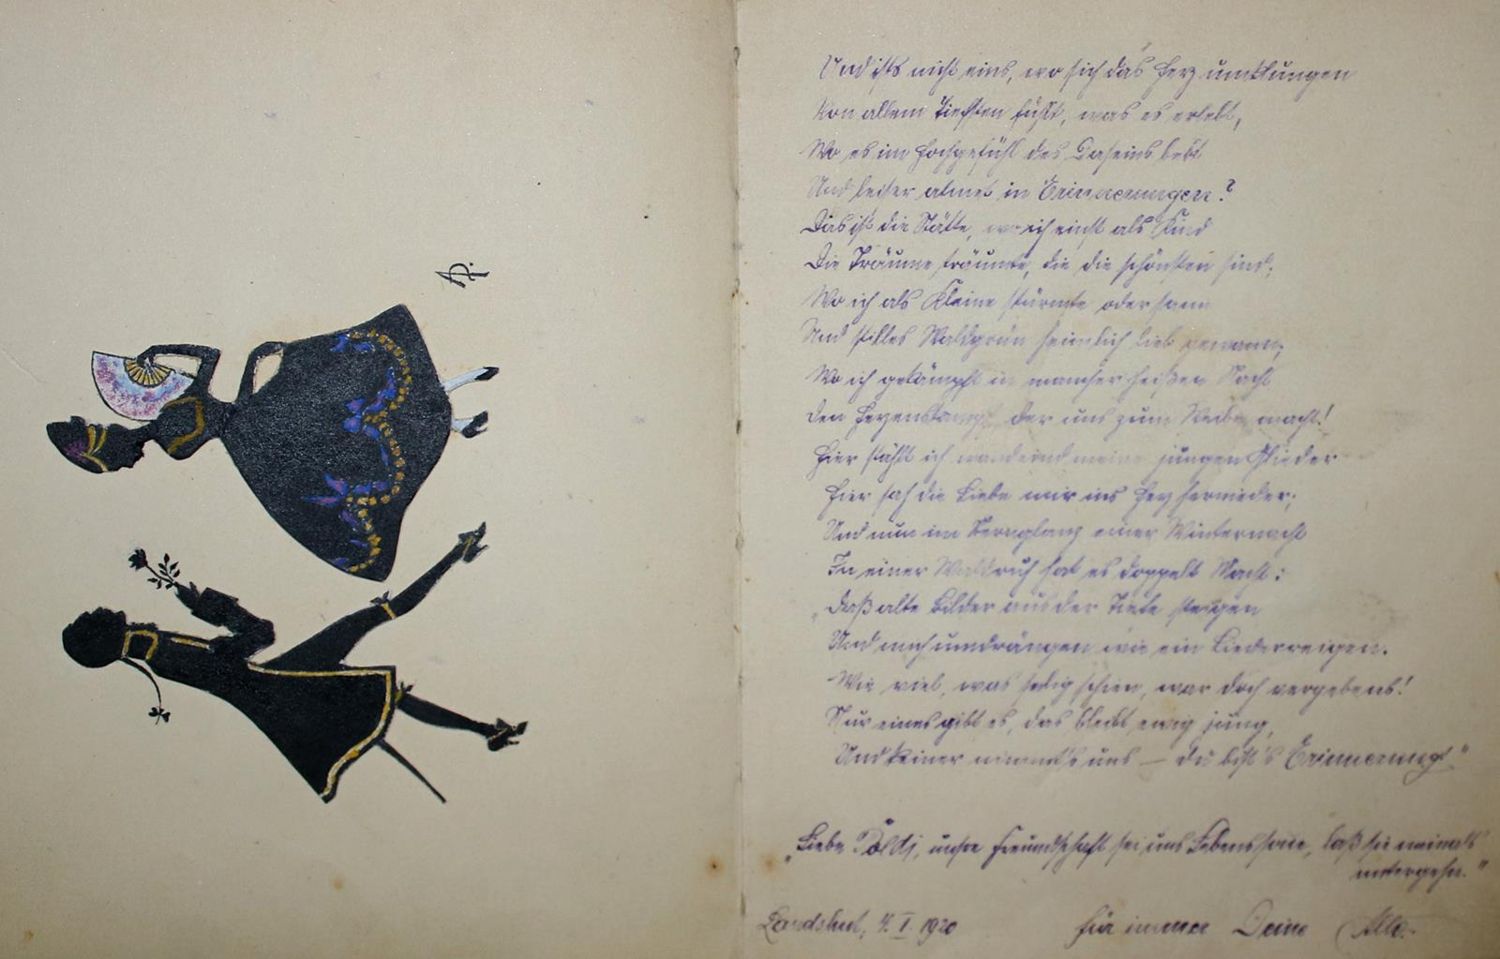 AP.
Und ist's nicht eins, wo sich das Herz umklungen
Von allem Tiefsten fühlt, was es erlebt,
Wo es im Hochgefühl des Daseins bebt
Und leiser atmet in Erinnerungen?
Das ist die Stätte, wo ich einst als Kind
Die Träume träumte, die die schönsten sind;
Wo ich als Kleine stürmte oder sann
Und stilles Waldgrün heimlich lieb gewann;
Wo ich gekämpft in mancher heißen Nacht
den Herzenskampf, der uns zum Weibe macht!
Hier stählt ich wandernd meine jungen Glieder
Hier sah die Liebe mir ins Herz hernieder;
Und nun im Sternglanz einer Winternacht
In einer Waldruh hat es doppelt Macht:
Daß alte Bilder aus der Tiefe steigen
Und mich umdrängen wie ein Liederreigen.
Wie viel, was selig schien, war doch vergebens!
Nur eines gibt es, das bleibt ewig jung,
Und keiner nimmt's uns — du bist's Erinnerung!"
„Liebe Poldi, unsre Freundschaft sei uns Lebenssonne, laß sie niemals
untergehn."
Landshut, 4. I. 1920 Für immer Deine